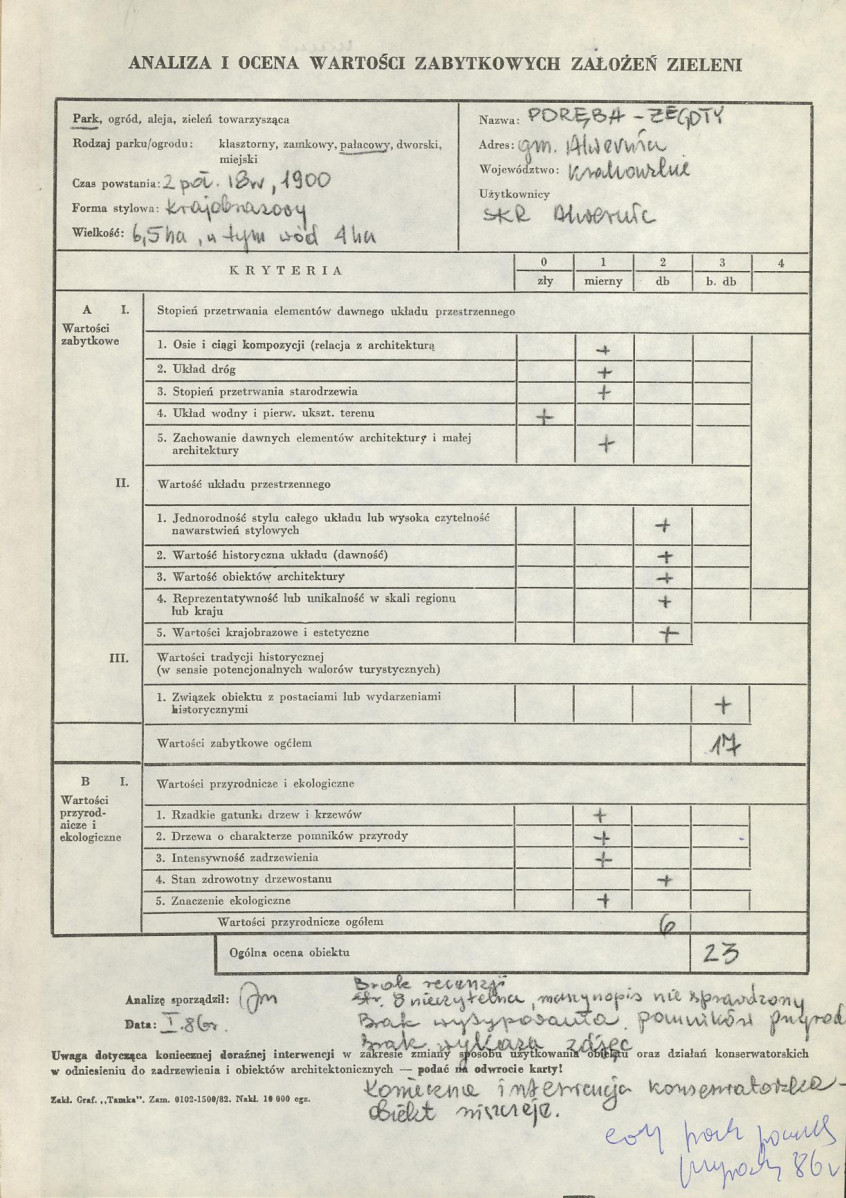 ANALIZA I OCENA WARTOŚCI ZABYTKOWYCH ZAŁOŻEŃ ZIELENI
Park, ogród, aleja, zieleń towarzysząca
Rodzaj parku/ogrodu: klasztorny, zamkowy, pałacowy, dworski,
miejski
Czas powstania: 2 poł. 18w, 1900
Forma stylowa: krajobrazowy
Wielkość: 6,5 ha, w tym wód 4 ha
Nazwa: PORĘBA - ŻEGOTY
Adres: gm. Alwernia
Województwo: krakowskie
Użytkownicy
SKR Alwernia
KRYTERIA 0 1 2 3 4
zły mierny db b. db
A I. Stopień przetrwania elementów dawnego układu przestrzennego
Wartości
zabytkowe
1. Osie i ciągi kompozycji (relacja z architekturą +
2. Układ dróg +
3. Stopień przetrwania starodrzewia +
4. Układ wodny i pierw. ukszt. terenu +
5. Zachowanie dawnych elementów architektury i małej
architektury +
II. Wartość układu przestrzennego
1. Jednorodność stylu całego układu lub wysoka czytelność
nawarstwień stylowych +
2. Wartość historyczna układu (dawność) +
3. Wartość obiektów architektury +
4. Reprezentatywność lub unikalność w skali regionu
lub kraju +
5. Wartości krajobrazowe i estetyczne +
III. Wartości tradycji historycznej
(w sensie potencjonalnych walorów turystycznych)
1. Związek obiektu z postaciami lub wydarzeniami
historycznymi +
Wartości zabytkowe ogółem 17
B I. Wartości przyrodnicze i ekologiczne
Wartości
przyrod-
nicze i
ekologiczne
1. Rzadkie gatunki drzew i krzewów +
2. Drzewa o charakterze pomników przyrody +
3. Intensywność zadrzewienia +
4. Stan zdrowotny drzewostanu +
5. Znaczenie ekologiczne +
Wartości przyrodnicze ogółem 6
Ogólna ocena obiektu 23
Analizę sporządził:
Data: I.86r.
Brak recenzji
str. 8 nieczytelna, maszynopis nie sprawdzony
Brak wysyposanta. pomników przyrod
Brak wykazu zdjęc
Uwaga dotycząca koniecznej doraźnej interwencji w zakresie zmiany sposobu użytkowania obiektu oraz działań konserwatorskich
w odniesieniu do zadrzewienia i obiektów architektonicznych — podać na odwrocie karty!
Konieczna interwencja konserwatorska -
obiekt niszczeje.
Zakł. Graf. „Tamka". Zam. 0102-1500/82. Nakł. 10 000 egz.
cały park
przyrody 86